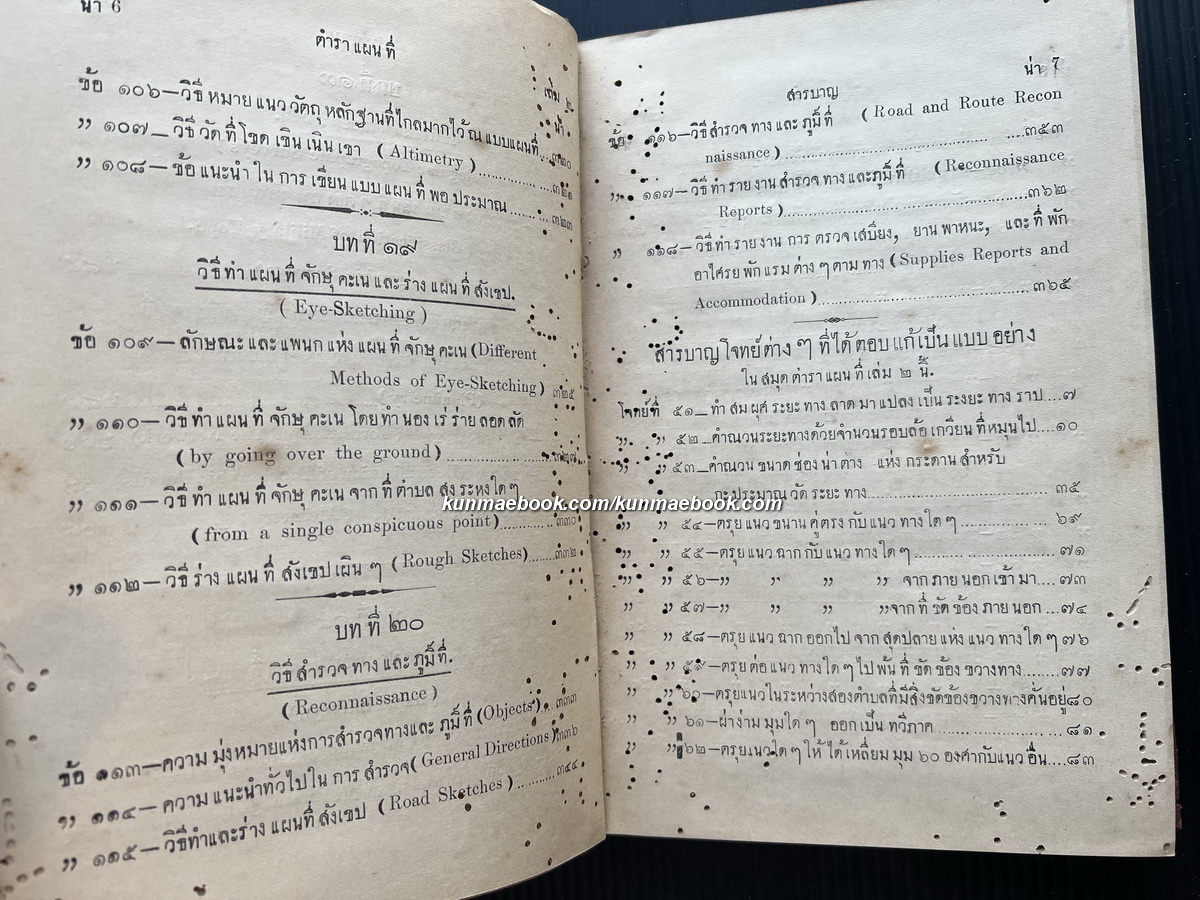 น่า 6
ตำรา แผน ที่
เล่ม ๒
น่า
ข้อ ๑๐๖—วิธี หมาย แนว วัตถุ หลักฐานที่ไกลมากไว้ ณ แบบแผนที่...๓๒๐
” ๑๐๗—วิธี วัด ที่ โขด เขิน เนิน เขา (Altimetry)...............๓๒๑
” ๑๐๘—ข้อ แนะนำ ใน การ เขียน แบบ แผน ที่ พอ ประมาณ.........๓๒๓
บท ที่ ๑๙
วิธี ทำ แผน ที่ จักษุ คะเน และ ร่าง แผน ที่ สังเขป.
( Eye-Sketching )
ข้อ ๑๐๙—ลักษณะ และ แพนก แห่ง แผน ที่ จักษุ คะเน (Different
Methods of Eye-Sketching) ๓๒๕
” ๑๑๐—วิธี ทำ แผน ที่ จักษุ คะเน โดย ทำ นอง เร่ ร่าย ลอด ลัด
(by going over the ground)....................
” ๑๑๑—วิธี ทำ แผน ที่ จักษุ คะเน จาก ที่ ตำบล สูง ระหง ใด ๆ
(from a single conspicuous point)............๓๓๐
” ๑๑๒—วิธี ร่าง แผน ที่ สังเขป เผิน ๆ (Rough Sketches)........๓๓๒
บท ที่ ๒๐
วิธี สำรวจ ทาง และ ภูมิ์ ที่.
(Reconnaissance)
ข้อ ๑๑๓—ความ มุ่งหมายแห่งการสำรวจทางและ ภูมิ์ ที่ (Objects). ๓๓๓
” ๑๑๔—ความ แนะนำ ทั่วไป ใน การ สำรวจ (General Directions) ๓๓๖
” ๑๑๕—วิธีทำและร่าง แผนที่ สังเขป (Road Sketches)...........๓๔๔
น่า 7
สารบาญ
ข้อ ๑๑๖—วิธี สำรวจ ทาง และ ภูมิ์ ที่ (Road and Route Recon
naissance)........................................๓๕๓
” ๑๑๗—วิธี ทำ ราย งาน สำรวจ ทาง และภูมิ์ ที่ (Reconnaissance
Reports).........................................๓๖๒
” ๑๑๘—วิธี ทำ ราย งาน การ ตรวจ เสบียง, ยาน พาหนะ, และ ที่ พัก
อาไศรย พัก แรม ต่าง ๆ ตาม ทาง (Supplies Reports and
Accommodation)................................๓๖๕
สารบาญ โจทย์ ต่าง ๆ ที่ ได้ ตอบ แก้ เป็น แบบ อย่าง
ใน สมุด ตำรา แผน ที่ เล่ม ๒ นี้.
โจทย์ที่ ๕๑—ทำ สม ผุศ ระยะ ทาง ลาด มา แปลง เป็น ระงยะ ทาง ราบ....๗
” ” ๕๒—คำณวนระยะทางด้วยจำนวนรอบล้อ เกวียน ที่หมุนไป....๑๐
” ” ๕๓—คำณวน ขนาด ช่อง น่า ต่าง แห่ง กระดาน สำหรับ
กะประมาณ วัด ระยะ ทาง.............................. ๓๕
” ” ๕๔—ตรุย แนว ขนาน คู่ ตรง กับ แนว ทาง ใด ๆ.............. ๖๙
” ” ๕๕—ตรุย แนว ฉาก กับ แนว ทาง ใด ๆ.......................๗๑
” ” ๕๖—” ” ” ” จาก ภาย นอก เข้า มา....๗๓
” ” ๕๗—” ” ” ”จาก ที่ ขัด ข้อง ภาย นอก...๗๔
” ” ๕๘—ตรุย แนว ฉาก ออก ไป จาก สุดปลาย แห่ง แนว ทาง ใด ๆ ๗๖
” ” ๕๙—ตรุย ต่อ แนว ทาง ใด ๆ ไป พ้น ที่ ขัด ข้อง ขวางทาง.....๗๗
” ” ๖๐—ตรุยแนวในระหว่างสองตำบลที่มีสิ่งขัดข้องขวางทางคั่นอยู่๘๐
” ” ๖๑—ผ่าง่าม มุม ใด ๆ ออก เป็น ทวีภาค................ ๘๑
” ” ๖๒—ตรุยแนวใด ๆ ให้ ได้ เหลี่ยม มุม ๖๐ องศากับแนว อื่น....๘๓
kunmaebook.com/kunmaebook.com